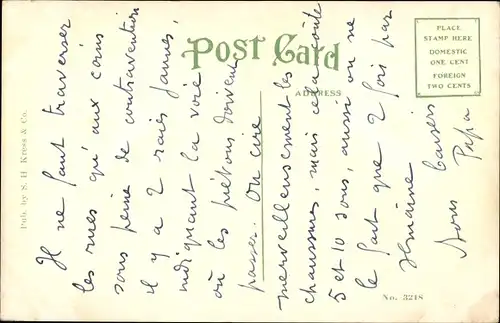 Post Card
ADDRESS
PLACE
STAMP HERE
DOMESTIC
ONE CENT
FOREIGN
TWO CENTS
Pub. by S. H. Kress & Co.
No. 3218
Il ne faut traverser
les rues qu'aux coins
sous peine de contravention
il y a 2 raies jaunes,
indiquant la voie
où les piétons doivent
passer. On cire
merveilleusement les
chaussures, mais cela coûte
5 et 10 sous, aussi on ne
le fait que 2 fois par
semaine
bons baisers
Papa